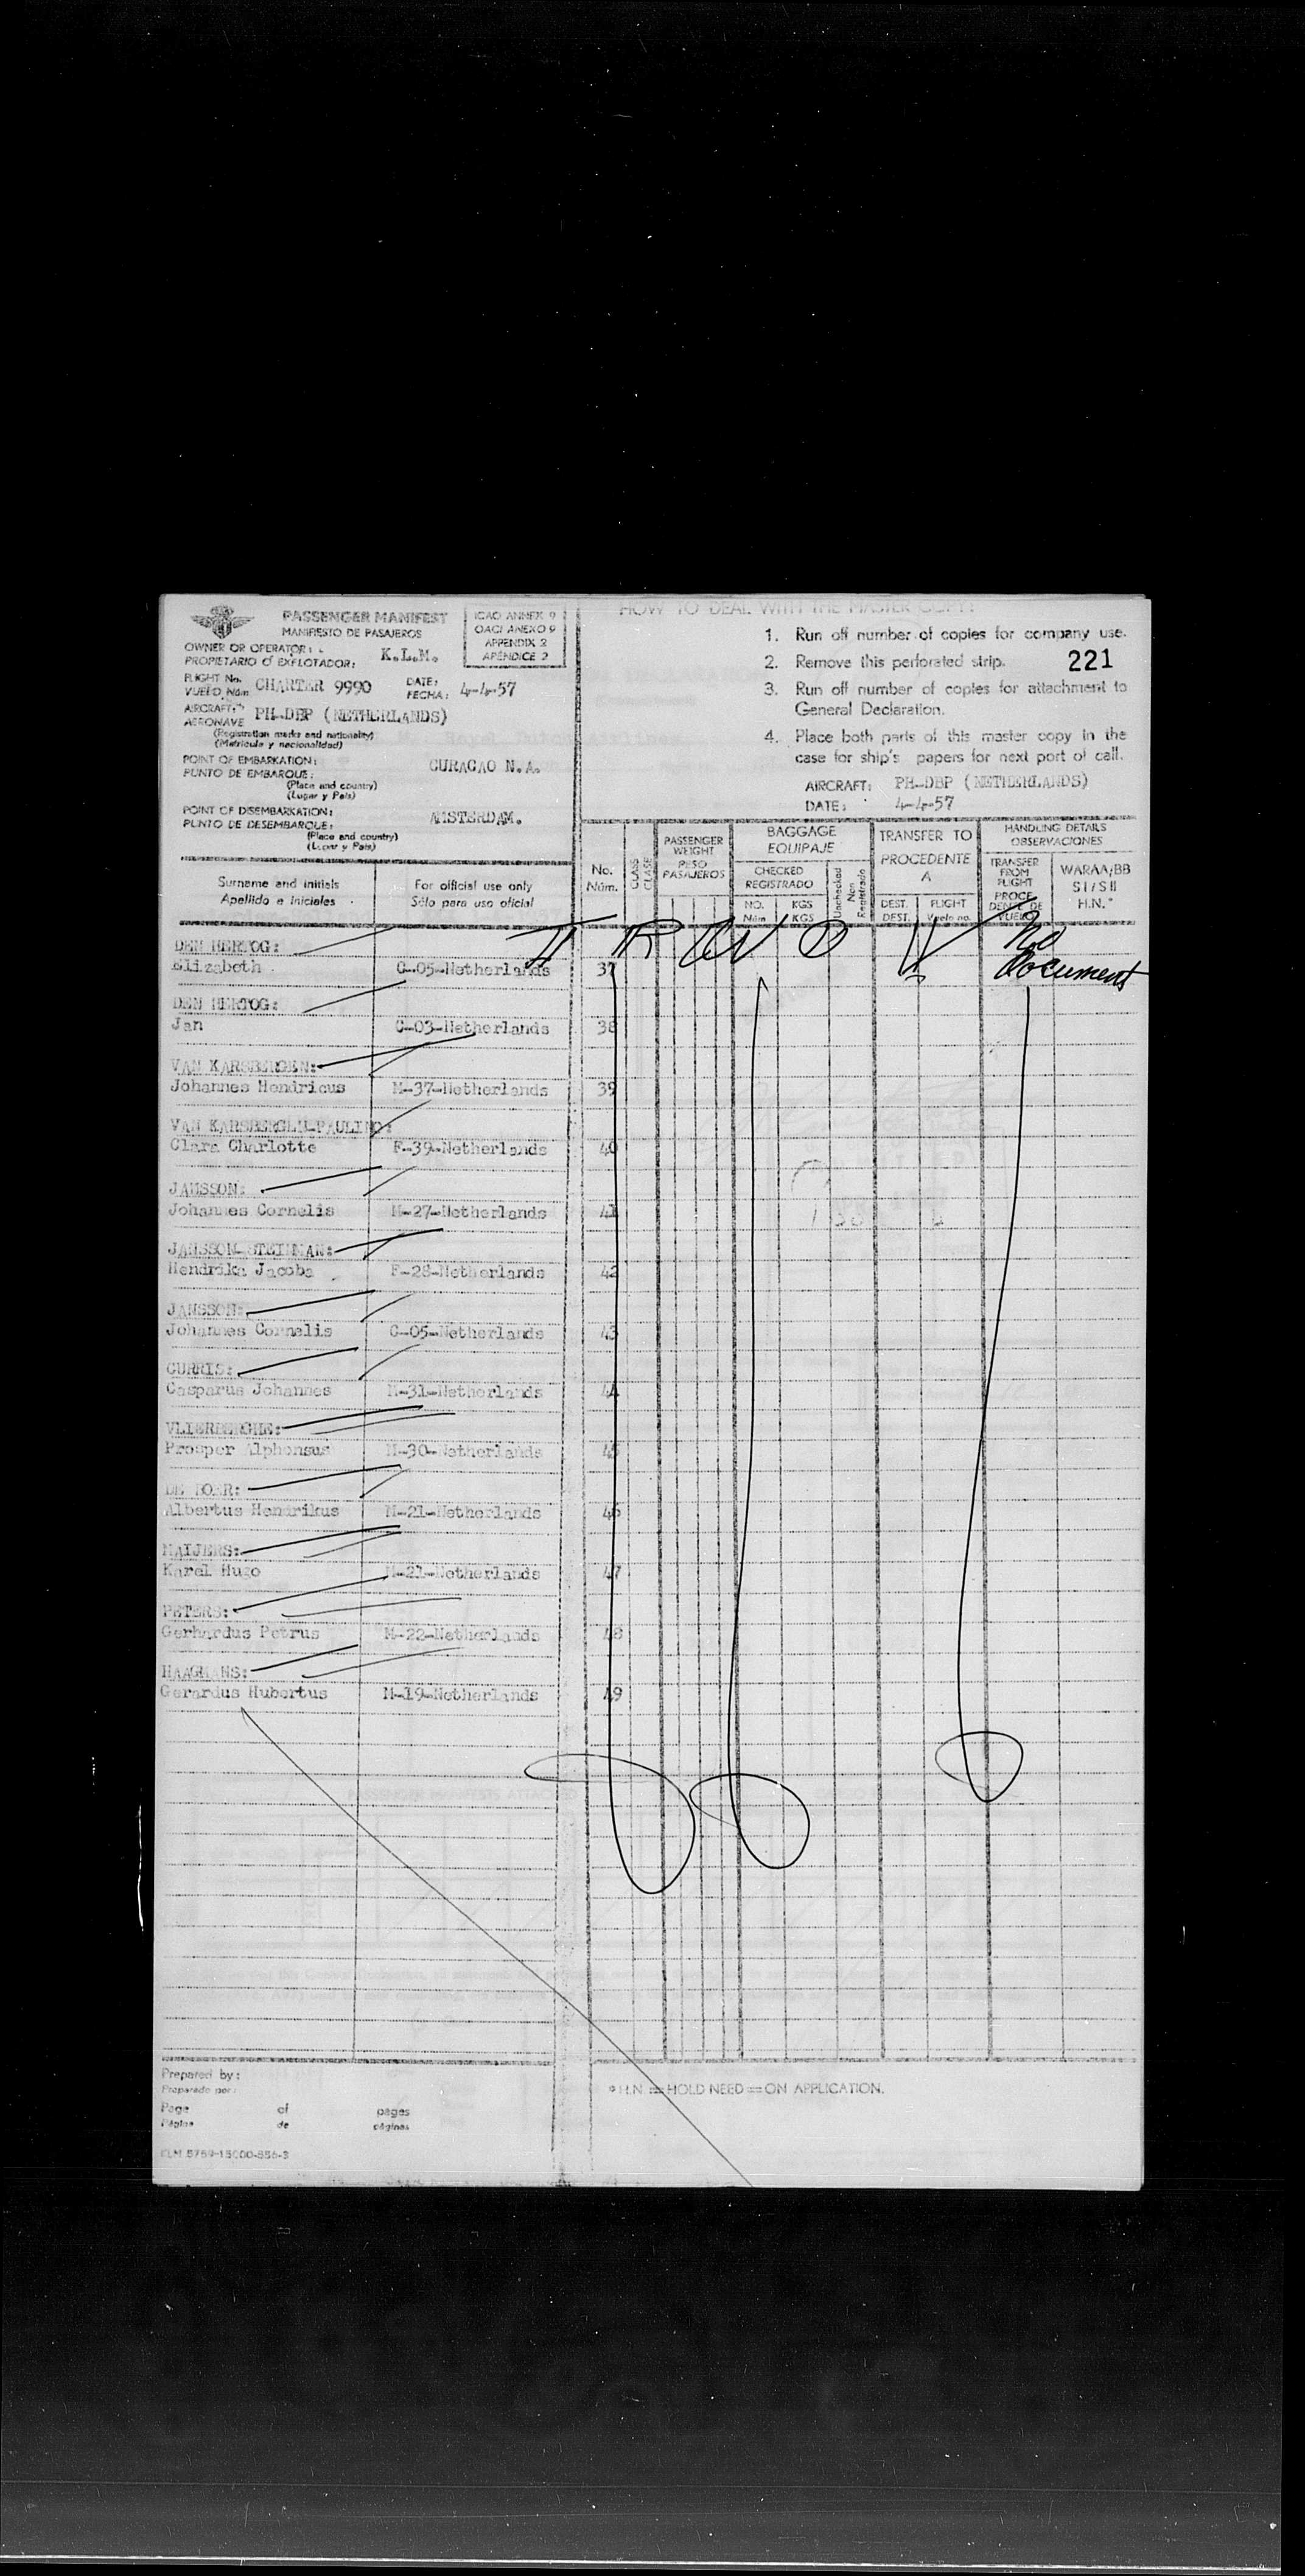 PASSENGER MANIFEST
MANIFIESTO DE PASAJEROS
ICAO ANNEX 9
OACI ANEXO 9
APPENDIX 2
APENDICE 2
OWNER OR OPERATOR:
PROPIETARIO O EXPLOTADOR: K.L.M.
FLIGHT No.
VUELO Núm CHARTER 9990
DATE:
FECHA: 4-4-57
AIRCRAFT:
AERONAVE PH-DBP (NETHERLANDS)
(Registration marks and nationality)
(Matricula y nacionalidad)
POINT OF EMBARKATION:
PUNTO DE EMBARQUE: CURACAO N.A.
(Place and country)
(Lugar y País)
POINT OF DISEMBARKATION:
PUNTO DE DESEMBARQUE: AMSTERDAM.
(Place and country)
(Lugar y País)
HOW TO DEAL WITH THE MASTER COPY:
1. Run off number of copies for company use.
2. Remove this perforated strip.
221
3. Run off number of copies for attachment to
General Declaration.
4. Place both parts of this master copy in the
case for ship's papers for next port of call.
AIRCRAFT: PH-DBP (NETHERLANDS)
DATE: 4-4-57
Surname and initials
Apellido e iniciales
For official use only
Sólo para uso oficial
No.
Núm.
CLASS
CLASE
PASSENGER
WEIGHT
PESO
PASAJEROS
BAGGAGE
EQUIPAJE
CHECKED
REGISTRADO
NO.
Núm
KGS
KGS
Unchecked
Non
Registrado
TRANSFER TO
PROCEDENTE
A
DEST.
DEST.
FLIGHT
Vuelo no.
HANDLING DETAILS
OBSERVACIONES
TRANSFER
FROM
FLIGHT
PROCE-
DENTE DE
VUELO
WARAA/BB
SI/SII
H.N.*
No
Document
DEN HERTOG:
Elizabeth C-05-Netherlands 37
DEN HERTOG:
Jan C-03-Netherlands 38
VAN KARSBERGEN:
Johannes Hendricus M-37-Netherlands 39
VAN KARSBERGEN-PAULINO:
Clara Charlotte F-39-Netherlands 40
JANSSON:
Johannes Cornelis M-27-Netherlands 41
JANSSON-STEINMAN:
Hendrika Jacoba F-28-Netherlands 42
JANSSON:
Johannes Cornelis C-05-Netherlands 43
CURRIS:
Casparus Johannes M-31-Netherlands 44
VLIERBERGHE:
Prosper Alphonsus M-30-Netherlands 45
DE BOER:
Albertus Hendrikus M-21-Netherlands 46
MAIJERS:
Karel Hugo M-21-Netherlands 47
PETERS:
Gerhardus Petrus M-22-Netherlands 48
HAAGMANS:
Gerardus Hubertus M-19-Netherlands 49
Prepared by:
Preparado por:
Page of pages
Página de páginas
KLM 5759-15000-556-3
*H.N == HOLD NEED == ON APPLICATION.